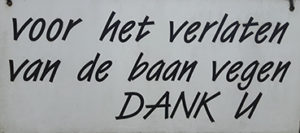 voor het verlaten
van de baan vegen
DANK U